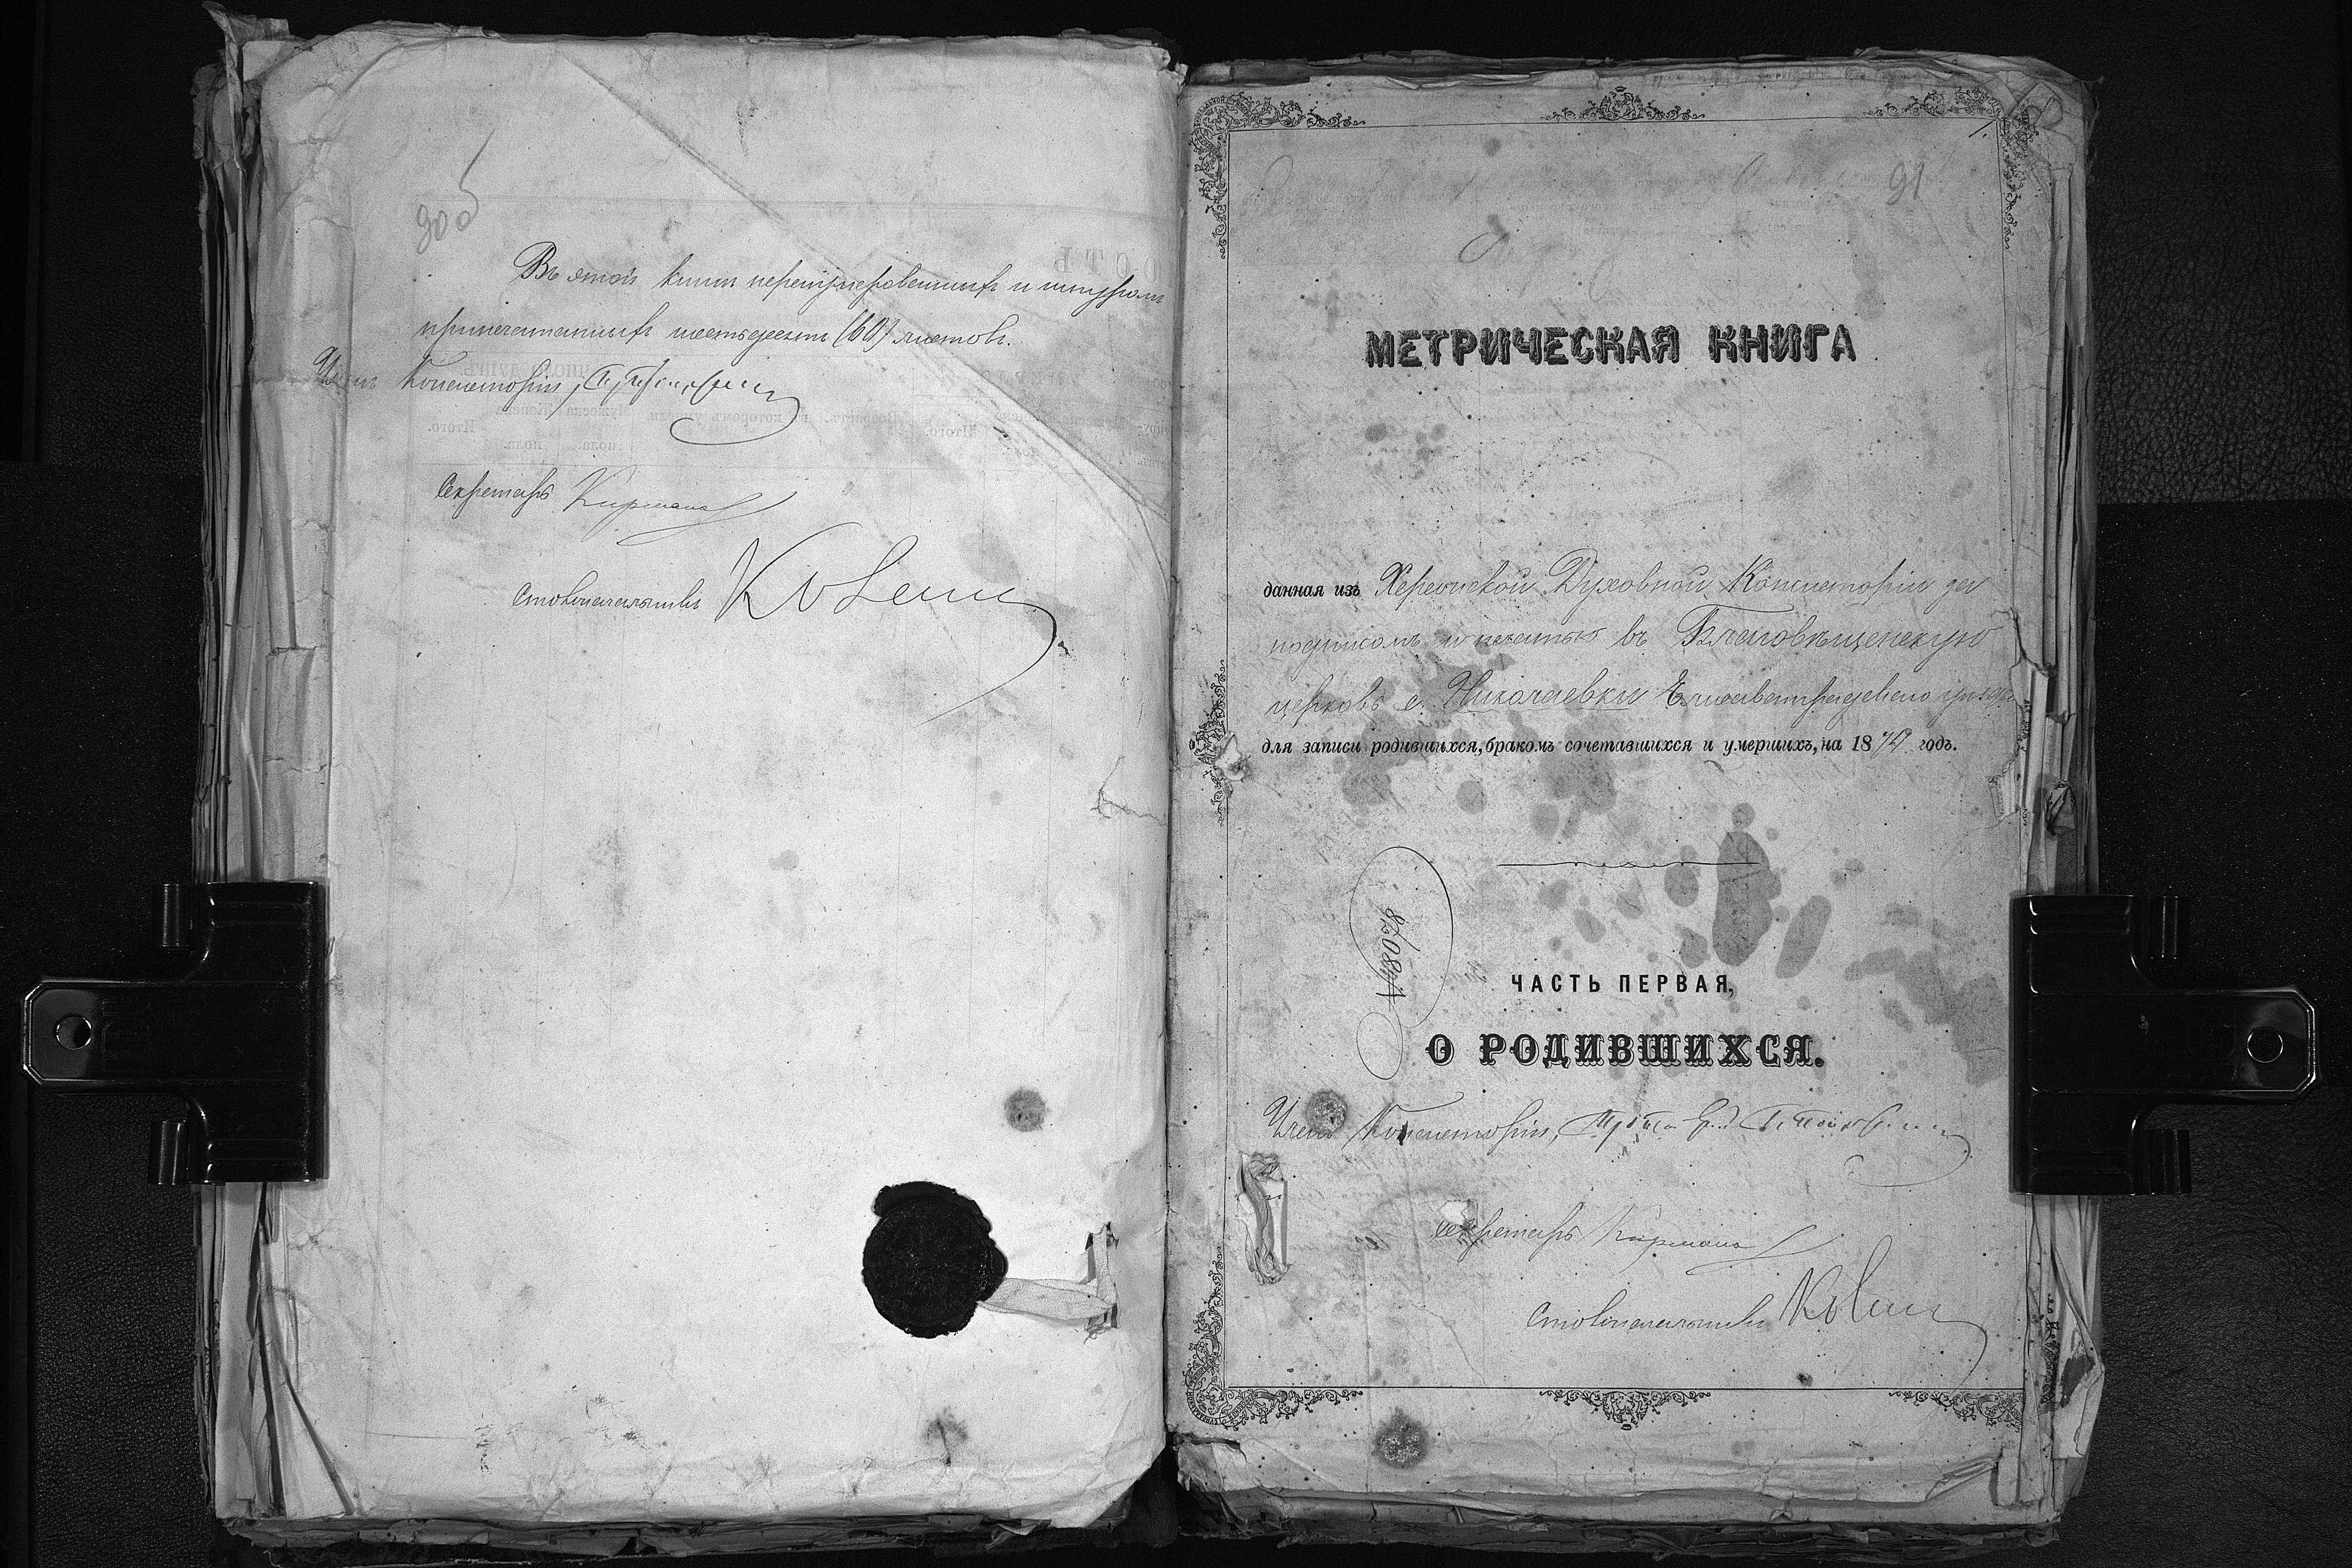 90 об
Въ этой книгѣ перенумерованныхъ и шнуромъ
припечатанныхъ шестьдесятъ (60) листовъ.
Членъ Консисторіи,
Секретарь
Столоначальникъ
91
МЕТРИЧЕСКАЯ КНИГА
данная изъ Херсонской Духовной Консисторіи за
подписомъ и печатью въ Благовѣщенскую
церковь с. Николаевки Елисаветградскаго уѣзда
для записи родившихся, бракомъ сочетавшихся и умершихъ, на 18 годъ.
ЧАСТЬ ПЕРВАЯ,
О РОДИВШИХСЯ.
Членъ Консисторіи,
Секретарь
Столоначальникъ